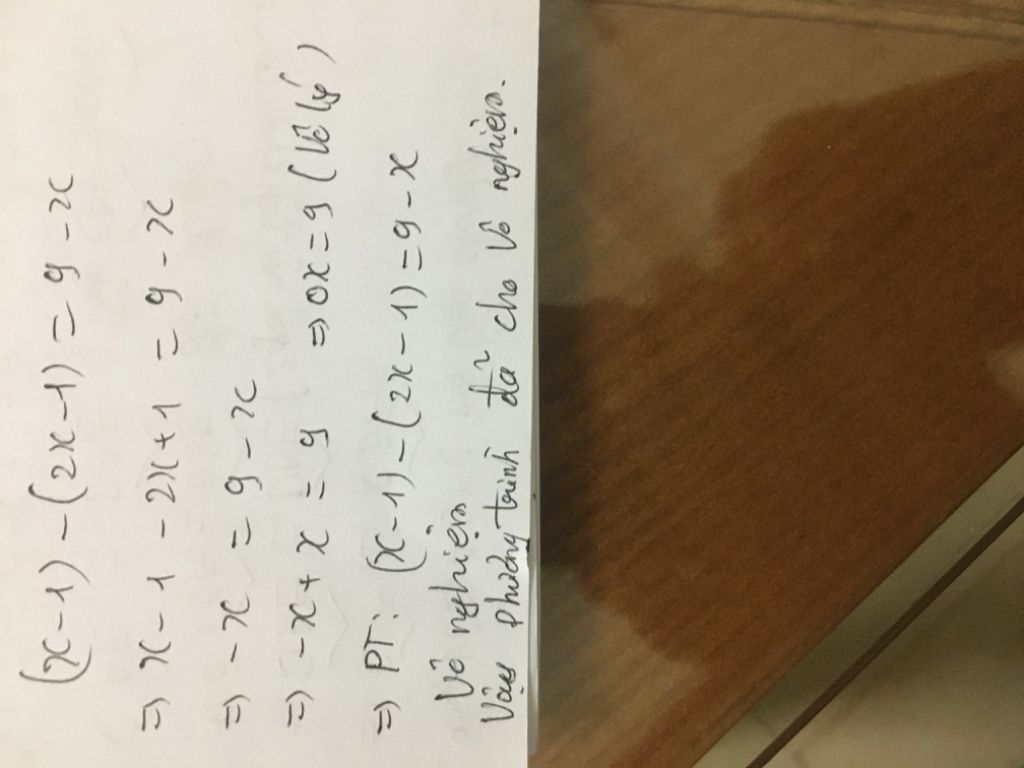 (x-1) - (2x-1) = 9 - x
=> x - 1 - 2x + 1 = 9 - x
=> -x = 9 - x
=> -x + x = 9 => 0x = 9 (Vô lý)
=> PT: (x-1) - (2x-1) = 9 - x
Vô nghiệm
Vậy phương trình đã cho vô nghiệm.